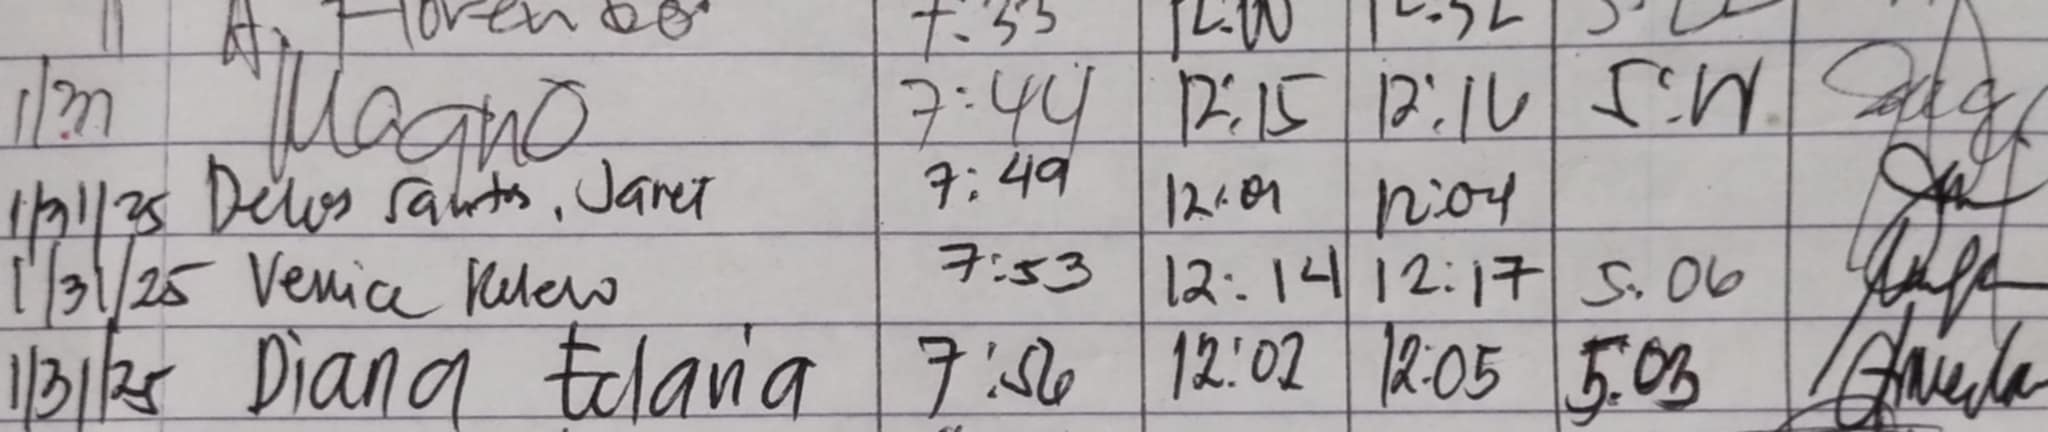 11 A. Florendo 7:33 12:00 12:32
1/31 Magno 7:44 12:15 12:16
1/31/25 Delos Santos, Janet 7:49 12:01 12:04
1/31/25 Venice 7:53 12:14 12:17 5:06
1/31/25 Diana 7:56 12:02 12:05 5:03